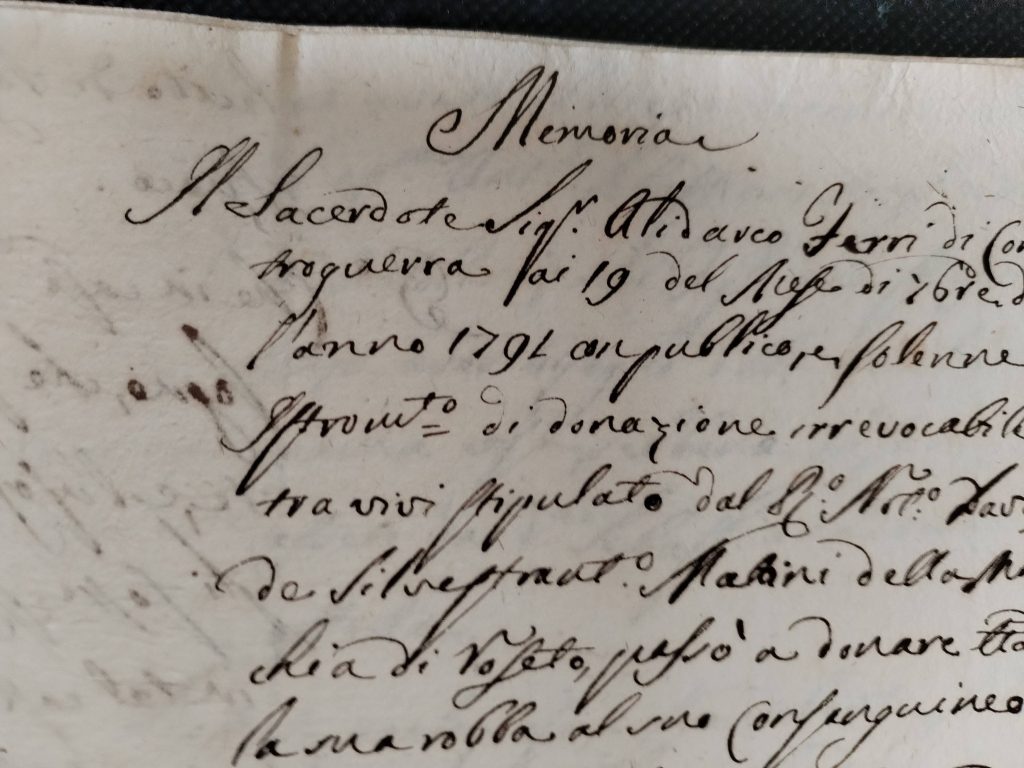 Memoria
Il Sacerdote Sig.r Alidarco Ferri di Con
troguerra ai 19 del Mese di 7bre d
l'anno 1791 con publico, e solenne
Istrom.to di donazione irrevocabile
tra vivi stipulato dal R.o N.ro
de Silvestrant.o Matini della
chia di Roseto, passò a donare tta
la sua robba al suo Consanguineo